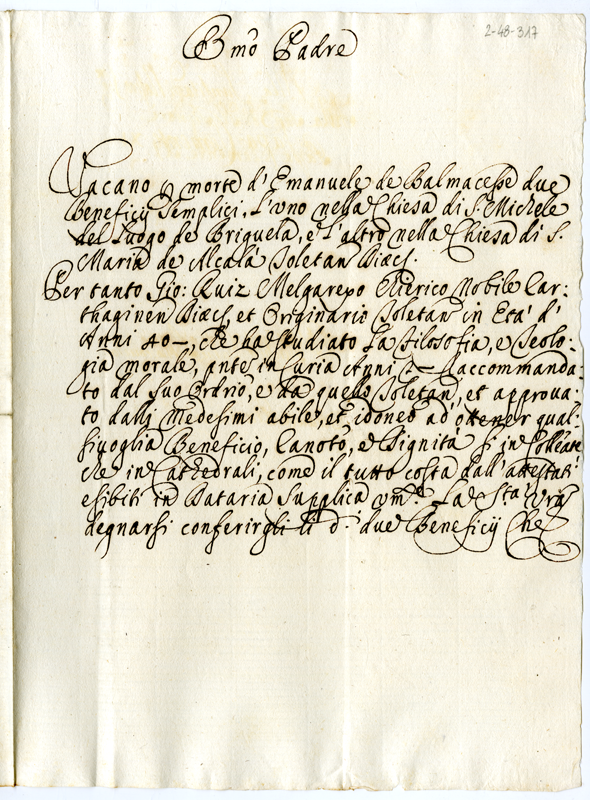 2-48-317
Bmo Padre
Vacano p morte d'Emanuele de Balmacesse due
Beneficij Semplici, L'uno nella Chiesa di S. Michele
del Luogo de Briguela, e L'altro nella Chiesa di S.
Maria de Alcala Toletan Diæcs.
Per tanto Gio: Ruiz Melgarexo Chierico Nobile Car:
thaginen Diæcs, et Originario Toletan in Età d'
Anni 40–, che ha studiato La Filosofia, e Teolo-
gia morale, ante in Curia Anni raccommanda-
to dal suo Ordrio, e da quello Toletan, et approva-
to dalli Medesimi abile, et idoneo ad ottener qual-
sivoglia Beneficio, Canoto, e Dignita si in Colleate
che in Cathedrali, come il tutto costa dall'attestati
esibiti in Dataria Supplica vmte La Stà Vrã
degnarsi conferirgli li d.i due Beneficij Che